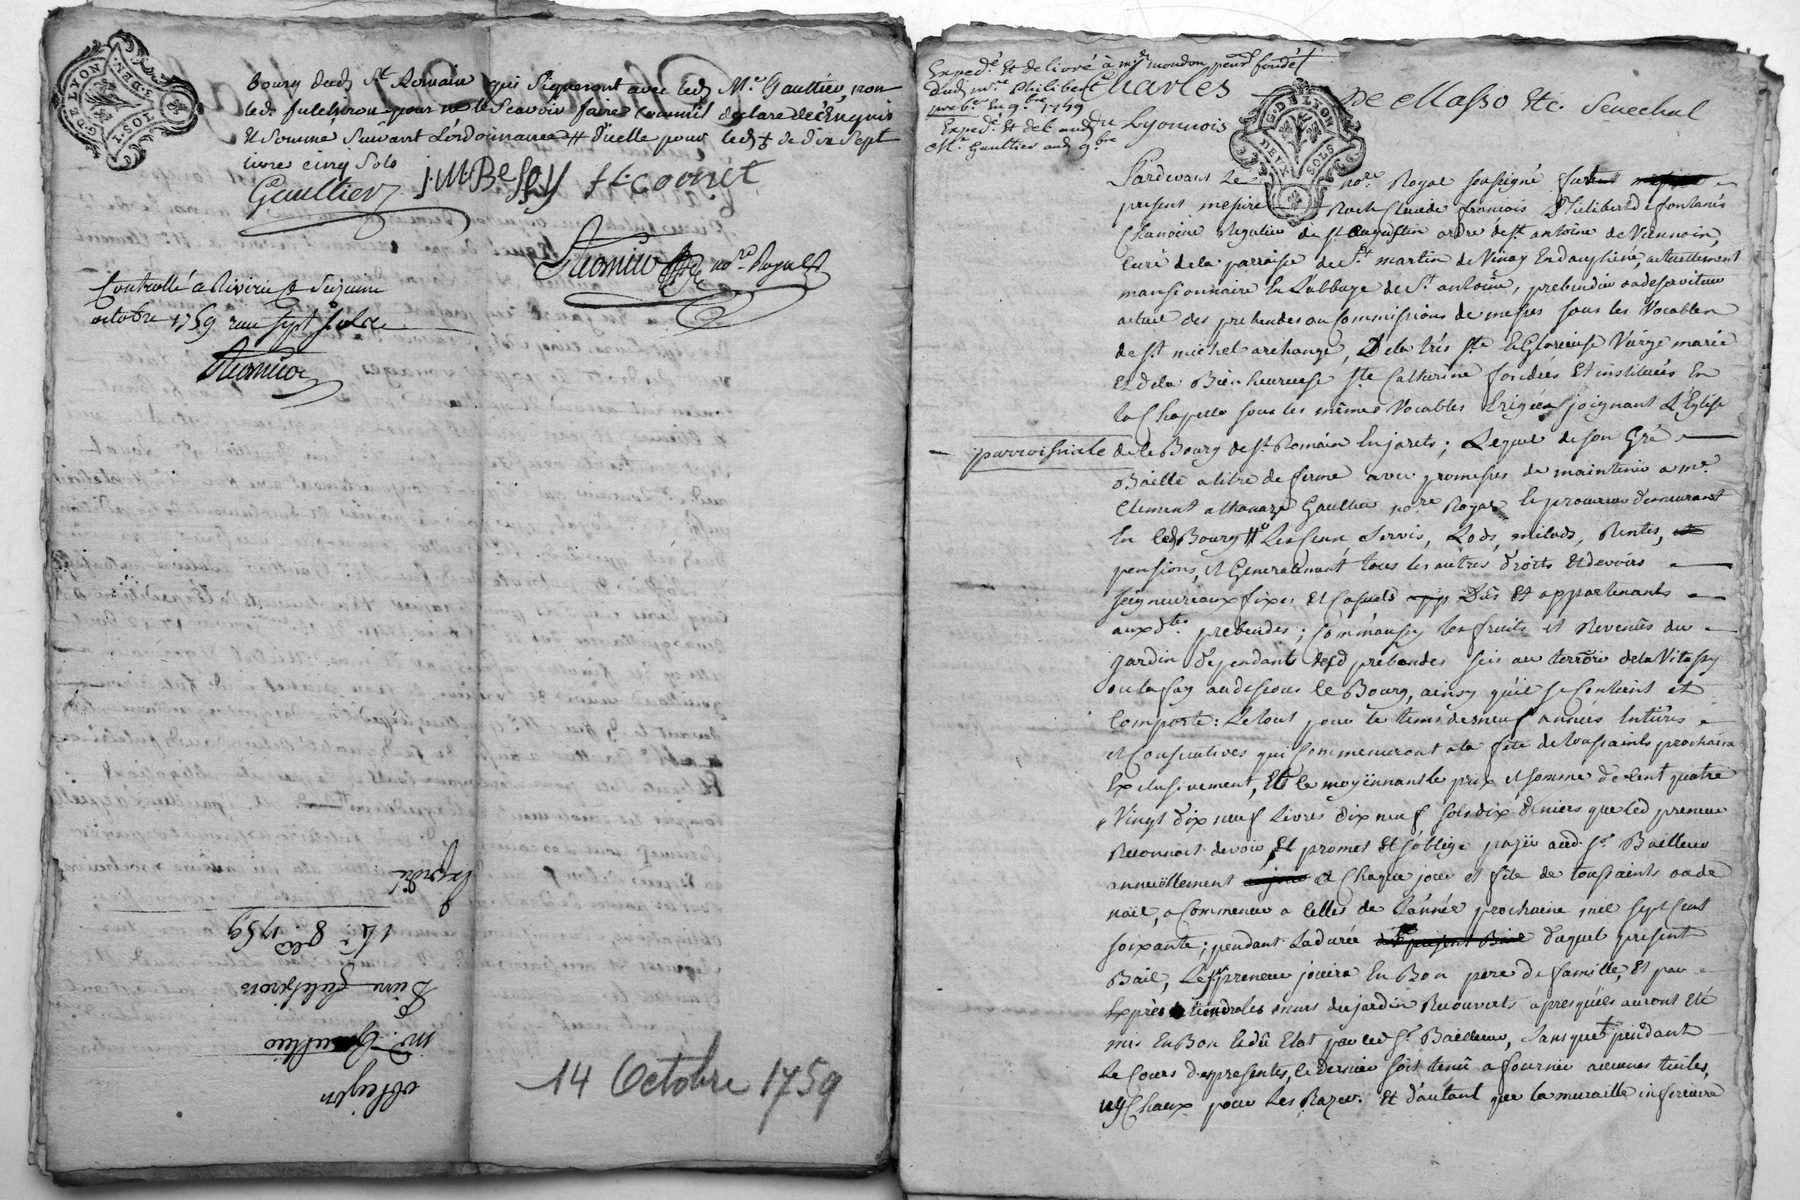 G. DE LYON
I. SOL
DEN.
bourg dud. St Romain qui signeront avec led. Me Gaultier, non
led. fulchiron pour ne le scavoir faire comme il declare de ce Enquis
Et sommé suivant L'ordonnance # d'icelle pour led. de dix sept
livre cinq sols
Gaultier J:M Bessy
no.re Royal
Controllé a Riverie ce
octobre 1759 reçu sept sols
14 Octobre 1759
obligon
mr. Gaultier
fulchiron
14. 8bre 1759
Expedé Et delivré à mr moudon
Dud. mre Philibert
9bre 1759
Exped. Et del. aud.
Me. Gaultier aud. 9bre
Charles De Masso Etc. Senechal
du Lyonnois
G. DE LYON
DEUX SOLS
Pardevant Le no.re Royal soussigné fut
present messire Roch Claude françois Philibert de fontanès
Chanoine Regulier de St. augustin ordre de St. antoine de Viennois,
curé de la parroisse de St. martin de Vinay En dauphiné, actuellement
mansionnaire En L'abbaye de St. antoine, prebendier ou deserviteur
actuel des prebendes ou Commissions de messes sous les Vocables
de St. michel archange, De la très Ste. & Glorieuse Vierge marie
Et de la Bienheureuse Ste. Catherine fondées Et instituées En
la Chapelle sous les mêmes Vocables Erigée joignant L'Eglise
parroissiale de le Bourg de St. Romain En jarets; Lequel de son Gré
Baille a titre de ferme avec promesses de maintenir a me.
Clement athanaze Gaultier no.re Royal & procureur demeurant
En led. Bourg # Les Cens Servis, Lods, milods, Rentes,
pensions, Et Generalement tous les autres droits Et devoirs
seigneuriaux fixes Et Casuels Dûs Et appartenants
aux dtes. prebendes; Comm'aussy les fruits et Revenûs du
jardin dependant desd. prebendes sis au terroir de la
ou la fay au dessous le Bourg, ainsy qu'il se Contient et
Comporte: Le tout pour le tems de neuf années Entieres
et Consecutives qui Commenceront a la fête de toussaints prochaine
Exclusivement, Et le moyënnant le prix et somme de Cent quatre
Vingt dix neuf Livres dix neuf sols dix deniers que led. preneur
Reconnoit devoir Et promet Et s'oblige païer aud. Sr. Bailleur
annuëllement a Chaque jour et fête de toussaints ou de
noël, a Commencer a Celles de L'année prochaine mil sept Cent
soixante; pendant La durée duquel present
Bail, Le Sr. preneur jouira En Bon pere de famille, Et par
Exprès tiendra les murs du jardin Recouverts après qu'ils auront Eté
mis En Bon & dû Etat par led. Sr. Bailleur, sans que pendant
Le Cours des presentes, le dernier soit tenû a fournir aucunes tuiles,
ny Chaux pour Les Razer. Et d'autant que la muraille inferieure